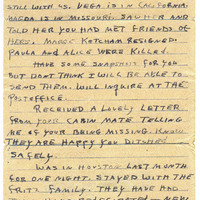 STILL WITH US. VEGA IS IN CALIFORNIA.
MAGDA IS IN MISSOURI. SAW HER AND
TOLD HER YOU HAD MET FRIENDS OF
HERS. MARGE KETCHAM RESIGNED.
PAULA AND ALICE WERE KILLED.
HAVE SOME SNAPSHOTS FOR YOU
BUT DON'T THINK I WILL BE ABLE TO
SEND THEM. WILL INQUIRE AT THE
POSTOFFICE.
RECEIVED A LOVELY LETTER
FROM YOUR CABIN MATE TELLING
ME OF YOUR BEING MISSING. KNOW
THEY ARE HAPPY YOU DITCHED
SAFELY.
WAS IN HOUSTON LAST MONTH
FOR ONE NIGHT. STAYED WITH THE
FRITZ FAMILY. THEY HAVE AND